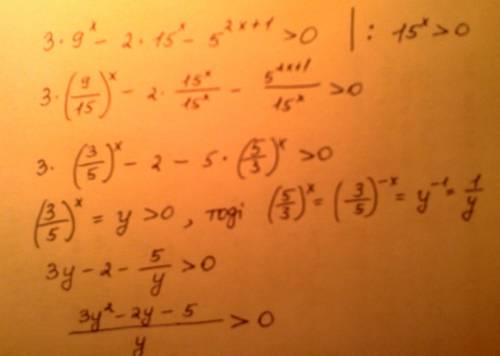 3·9^x − 2·15^x − 5^{2x+1} > 0 | : 15^x > 0
3·(9/15)^x − 2·15^x/15^x − 5^{2x+1}/15^x > 0
3·(3/5)^x − 2 − 5·(5/3)^x > 0
(3/5)^x = y > 0, тоді (5/3)^x = (3/5)^{−x} = y^{−1} = 1/y
3y − 2 − 5/y > 0
(3y² − 2y − 5)/y > 0